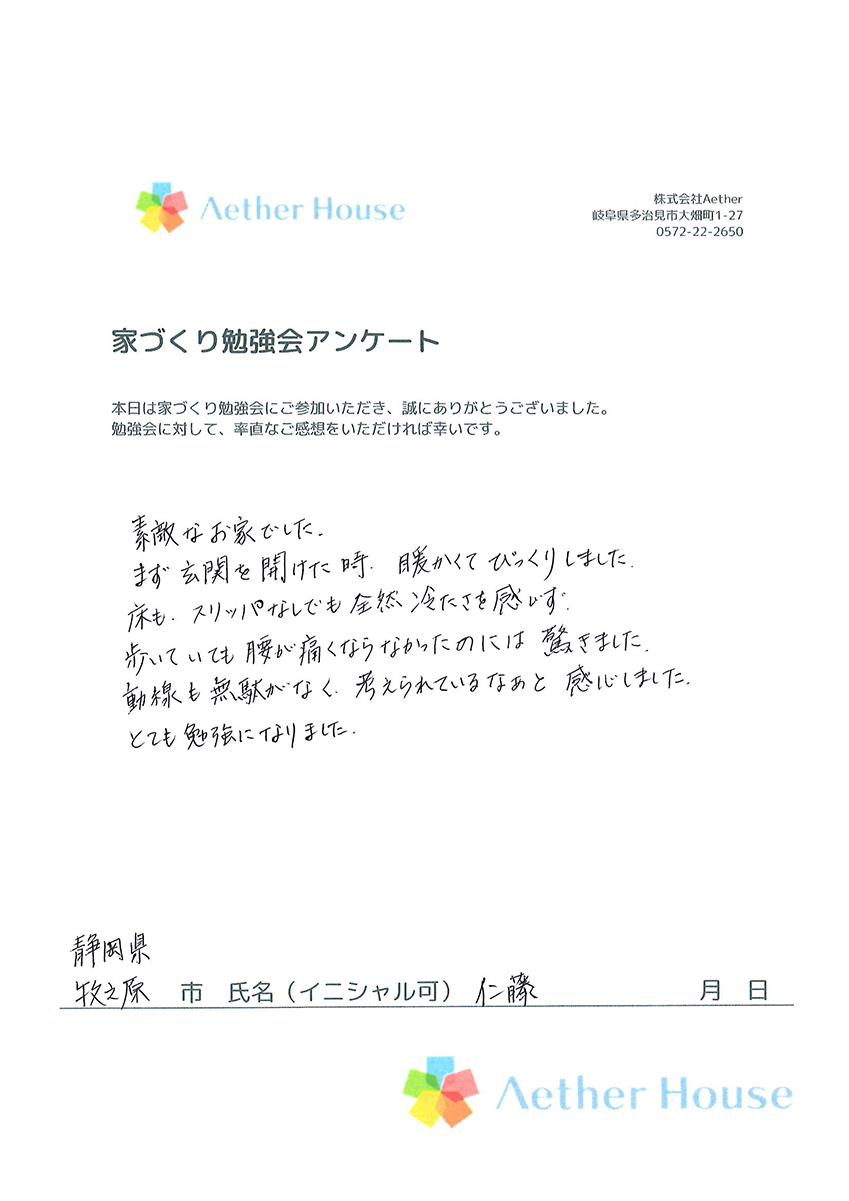 Aether House
株式会社Aether
岐阜県多治見市大畑町1-27
0572-22-2650
家づくり勉強会アンケート
本日は家づくり勉強会にご参加いただき、誠にありがとうございました。
勉強会に対して、率直なご感想をいただければ幸いです。
素敵なお家でした.
まず玄関を開けた時. 暖かくてびっくりしました.
床も. スリッパなしでも全然冷たさを感じず.
歩いていても腰が痛くならなかったのには驚きました.
動線も無駄がなく. 考えられているなぁと感心しました.
とても勉強になりました.
静岡県
牧之原 市 氏名（イニシャル可） 仁藤 月 日
Aether House